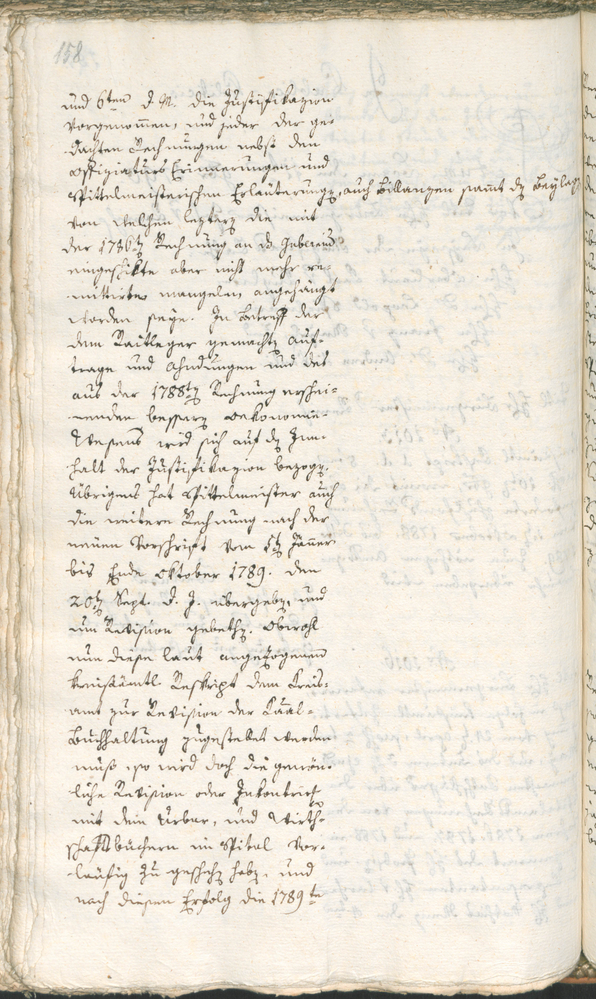 158.
und 6ten d. M. die Justifikazion
vorgenommen, und jeder der ge-
dachten Rechnungen nebst den
Offiziaturs Erinnerungen und
Spittelmeisterischen Erläuterungen, auch Billanzen samt den Beylagen
von welchen letztern die mit
der 1786ten Rechnung an
eingeschikte aber nicht mehr re-
mittirte mangeln, angehängt
worden seye. In Betreff der
dem Raitleger gemachten Auf-
trage und Ahndungen und des
aus der 1788ten Rechnung erschei-
nenden bessern oekonomie-
Wesens wird sich auf den Inn-
halt der Justifikazion bezogen.
Übrigens hat Spittelmeister auch
die weitere Rechnung nach der
neuen Vorschrift vom 1ten Jänner
bis Ende Oktober 1789. den
20ten Sept. d. J. übergeben, und
um Revision gebethen. Obwohl
nun diese laut angezogenen
kreisämtl. Reskript dem Kreis-
amt zur Revision der Kaal-
Buchhaltung zugestellet werden
muß, so wird doch die gewön-
liche Revision oder
mit dem Urbar, und Wirth-
schaftbüchern im Spital vor-
läufig zu geschehen haben, und
nach diesem Erfolg die 1789te